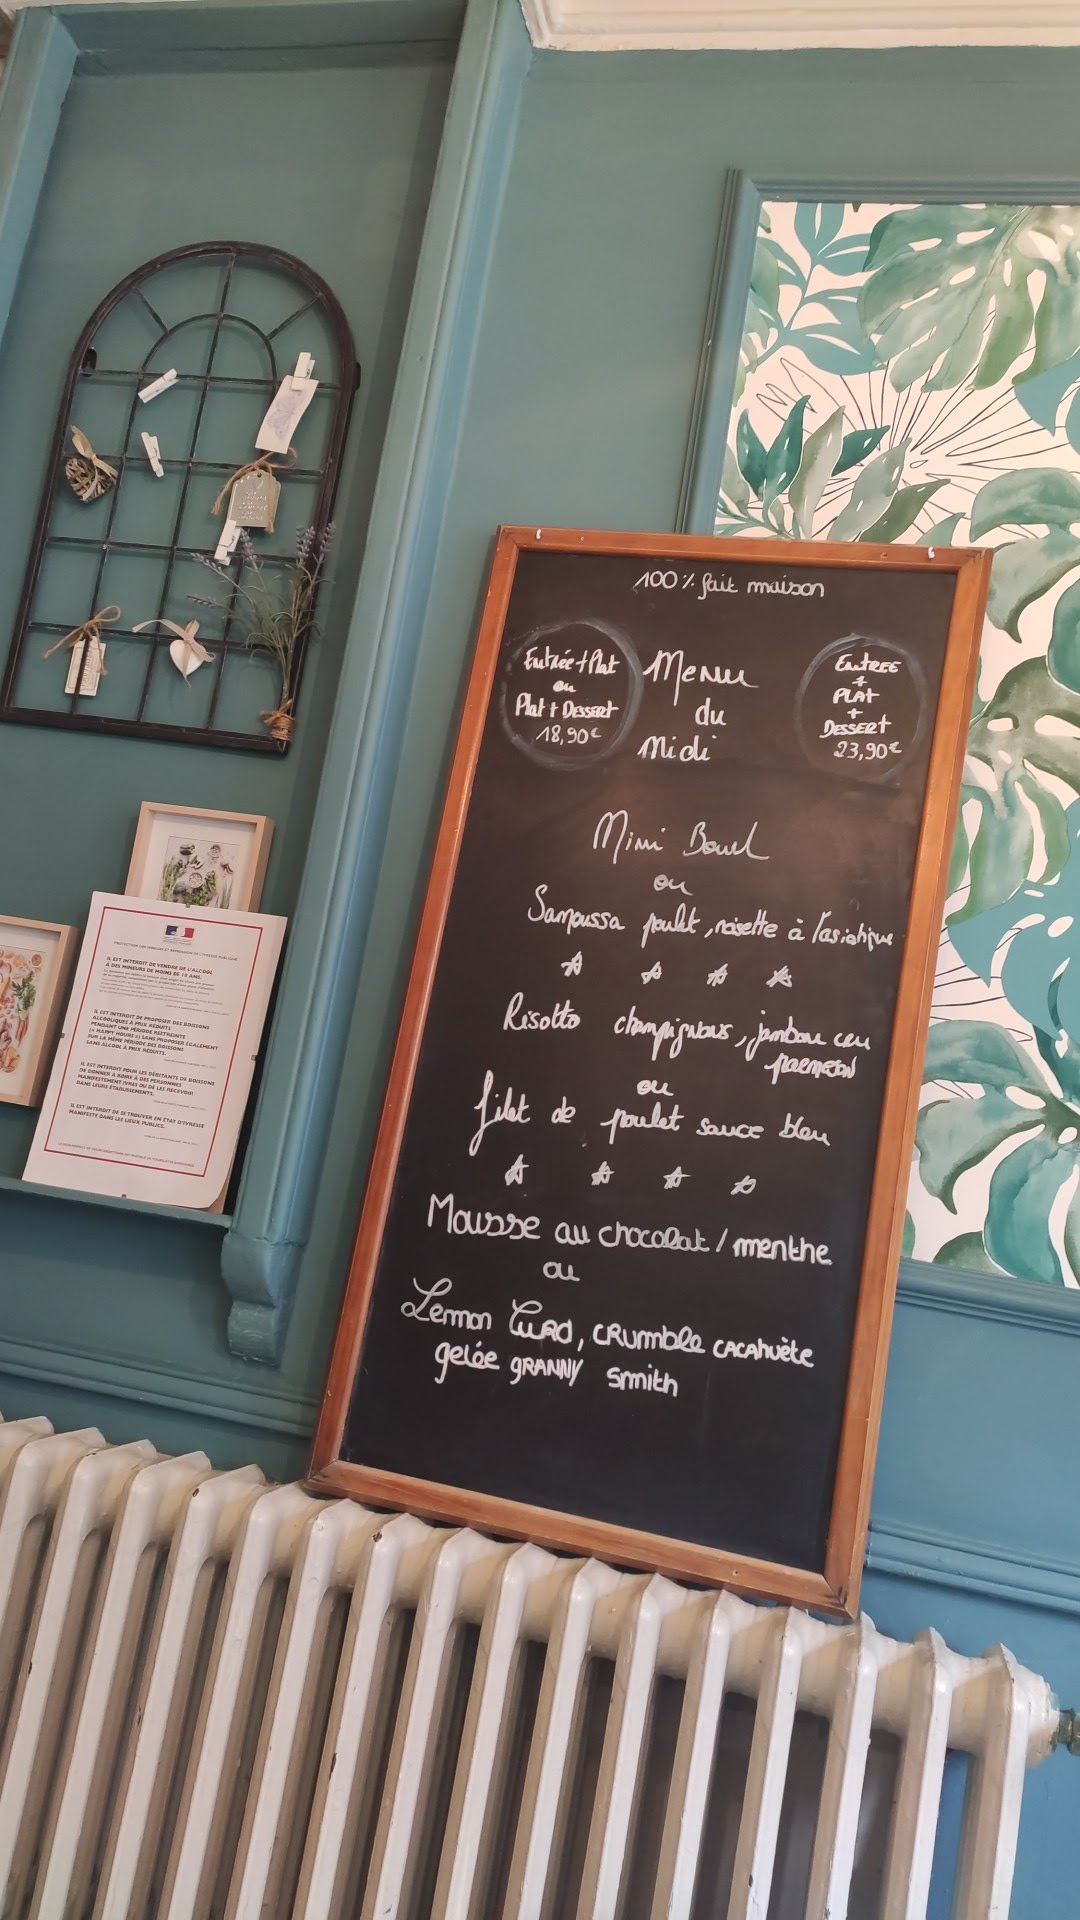 100% fait maison
Entrée + Plat
ou
Plat + Dessert
18,90€
Menu
du
Midi
ENTREE
+
PLAT
+
DESSERT
23,90€
Mini Bowl
ou
Samoussa poulet, noisette à l'asiatique
Risotto champignons, jambon cru
parmesan
ou
filet de poulet sauce bleu
Mousse au chocolat / menthe
ou
Lemon Curd, crumble cacahuète
gelée granny smith
PROTECTION DES MINEURS ET RÉPRESSION DE L'IVRESSE PUBLIQUE
IL EST INTERDIT DE VENDRE DE L'ALCOOL
À DES MINEURS DE MOINS DE 18 ANS.
IL EST INTERDIT DE PROPOSER DES BOISSONS
ALCOOLIQUES À PRIX RÉDUITS
PENDANT UNE PÉRIODE RESTREINTE
(« HAPPY HOURS ») SANS PROPOSER ÉGALEMENT
SUR LA MÊME PÉRIODE DES BOISSONS
SANS ALCOOL À PRIX RÉDUITS.
IL EST INTERDIT POUR LES DÉBITANTS DE BOISSONS
DE DONNER À BOIRE À DES PERSONNES
MANIFESTEMENT IVRES OU DE LES RECEVOIR
DANS LEURS ÉTABLISSEMENTS.
IL EST INTERDIT DE SE TROUVER EN ÉTAT D'IVRESSE
MANIFESTE DANS LES LIEUX PUBLICS.